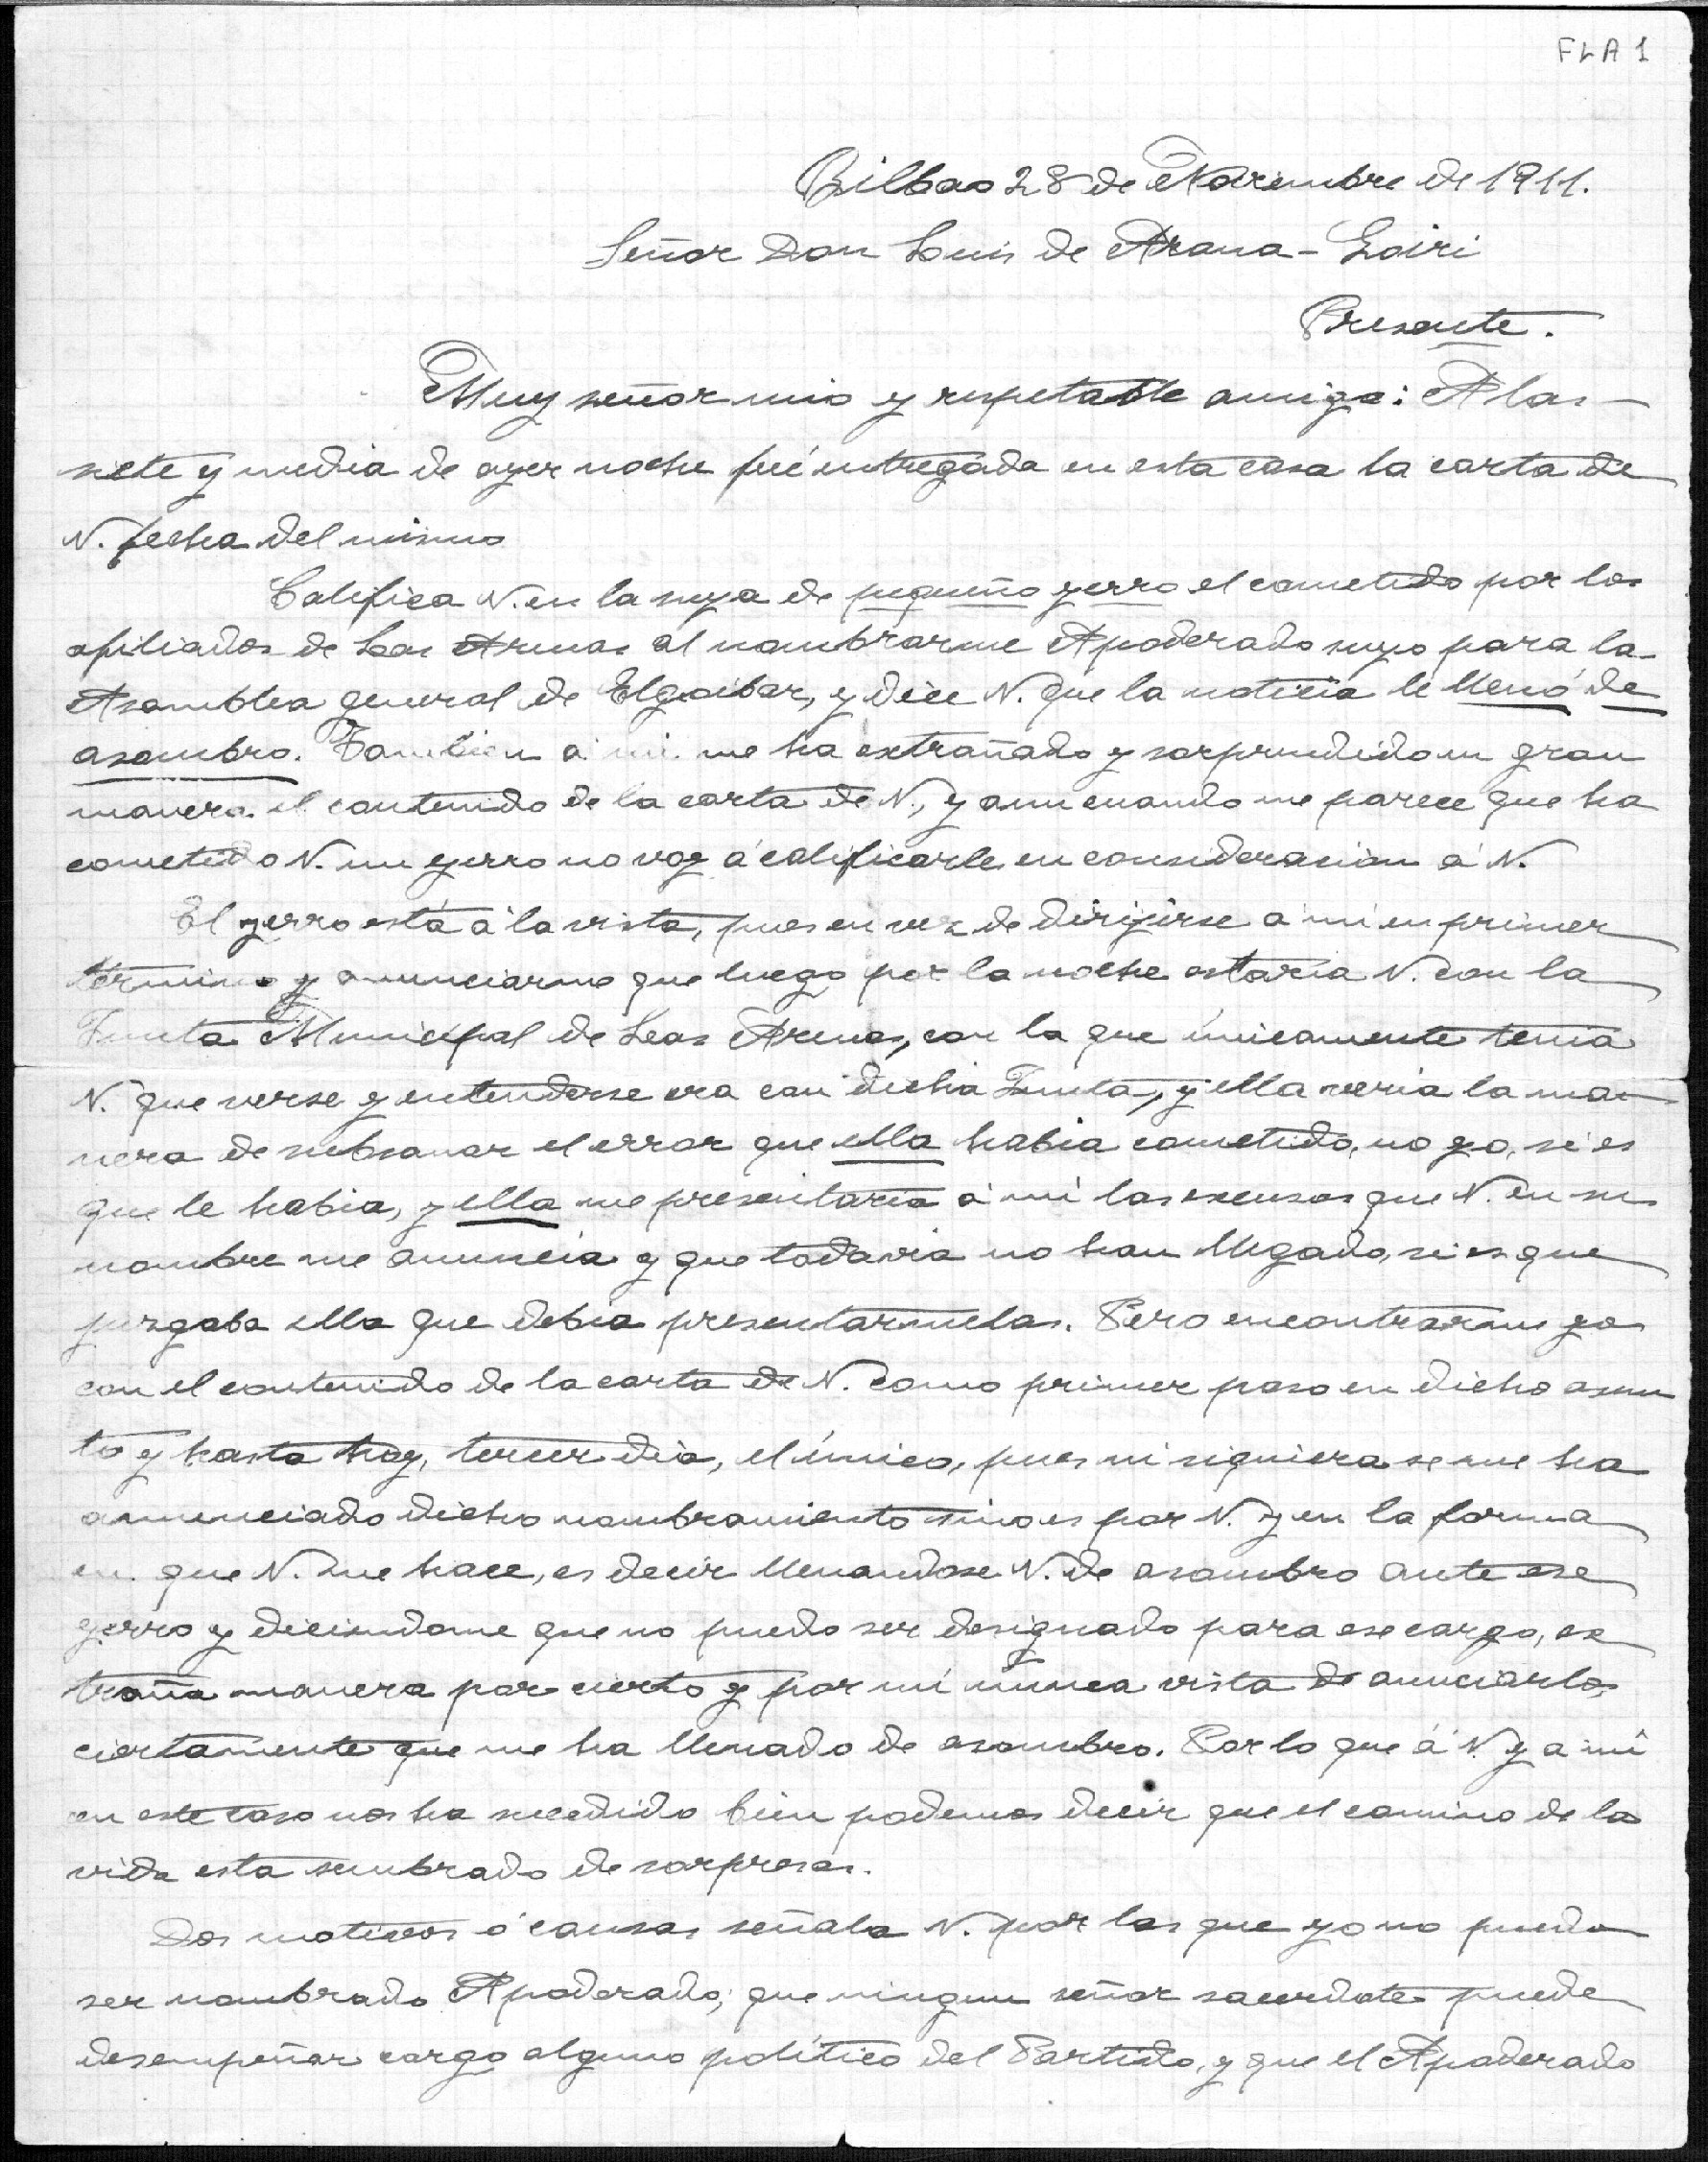 FLA 1
Bilbao 28 de Noviembre de 1911.
Señor Don Luis de Arana-Goiri
Presente.
Muy señor mio y respetable amigo: A las
siete y media de ayer noche fué entregada en esta casa la carta de
V. fecha del mismo
Califica V. en la suya de pequeño yerro el cometido por los
afiliados de Las Arenas al nombrarme Apoderado suyo para la
Asamblea general de Elgoibar, y dice V. que la noticia le llenó de
asombro. Tambien á mi me ha extrañado y sorprendido en gran
manera el contenido de la carta de V., y aun cuando me parece que ha
cometido V. un yerro no voy á calificarle en consideracion á V.
El yerro está á la vista, pues en vez de dirijirse á mi en primer
término y anunciarme que luego por la noche estaria V. con la
Junta Municipal de Las Arenas, con la que únicamente tenia
V. que verse y entenderse era con dicha Junta, y ella veria la ma-
nera de subsanar el error que ella habia cometido, no yo, si es
que le habia, y ella me presentaria á mí las excusas que V. en su
nombre me anuncia y que todavia no han llegado, si es que
juzgaba ella que debia presentarmelas. Pero encontrarme yo
con el contenido de la carta de V. como primer paso en dicho asun
to y hasta hoy, tercer dia, el único, pues ni siquiera se me ha
anunciado dicho nombramiento sino es por V. y en la forma
en que V. me hace, es decir llenandose V. de asombro ante ese
yerro y diciendome que no puedo ser designado para ese cargo, ex
traña manera por cierto y por mí nunca vista de anunciarlo,
ciertamente que me ha llenado de asombro. Por lo que á V. y a mí
en este caso nos ha sucedido bien podemos decir que el camino de la
vida esta sembrado de sorpresas.
Dos motivos ó causas señala V. por las que yo no puedo
ser nombrado Apoderado; que ningun señor sacerdote puede
desempeñar cargo alguno político del Partido, y que el Apoderado